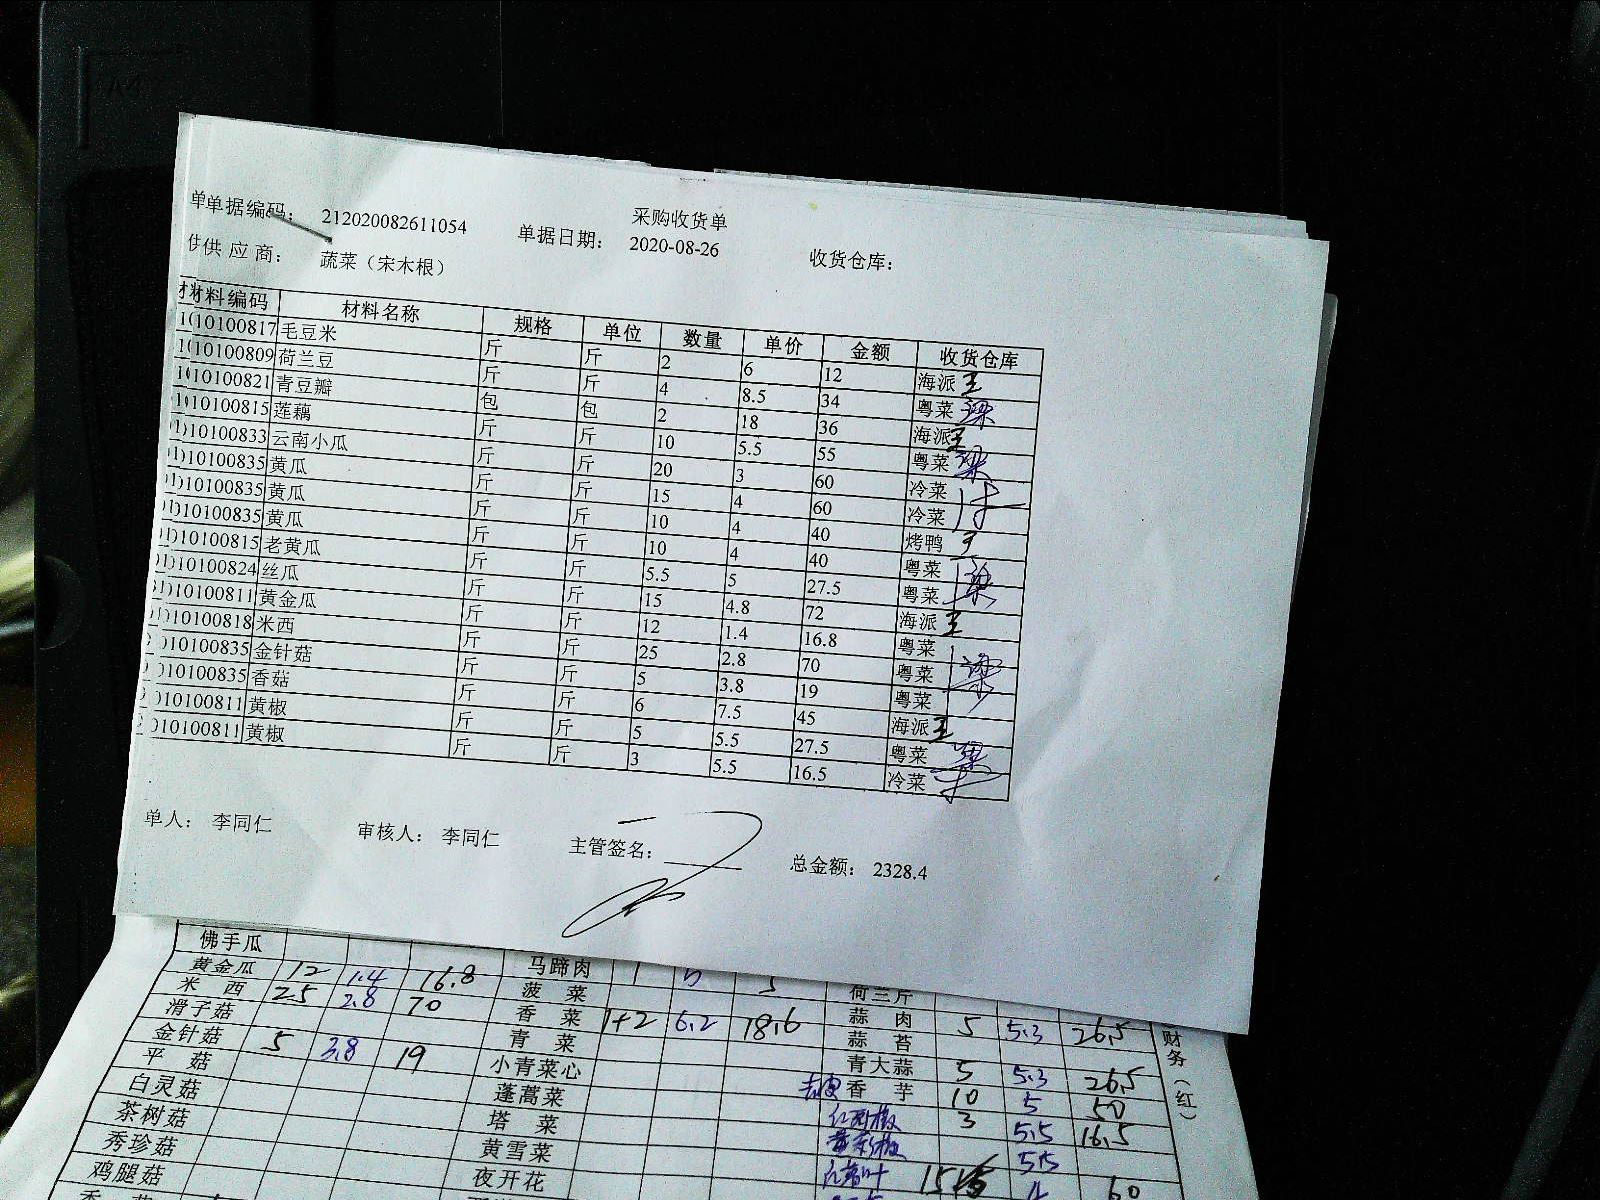 采购收货单
单单据编码: 212020082611054 单据日期: 2020-08-26 收货仓库:
供供应商: 蔬菜（宋木根）
材材料编码 材料名称 规格 单位 数量 单价 金额 收货仓库
10100817 毛豆米 斤 斤 2 6 12 海派 王
10100809 荷兰豆 斤 斤 4 8.5 34 粤菜 梁
10100821 青豆瓣 包 包 2 18 36 海派 王
10100815 莲藕 斤 斤 10 5.5 55 粤菜 梁
10100833 云南小瓜 斤 斤 20 3 60 冷菜
10100835 黄瓜 斤 斤 15 4 60 冷菜
10100835 黄瓜 斤 斤 10 4 40 烤鸭
10100835 黄瓜 斤 斤 10 4 40 粤菜
10100815 老黄瓜 斤 斤 5.5 5 27.5 粤菜 梁
10100824 丝瓜 斤 斤 15 4.8 72 海派 王
10100811 黄金瓜 斤 斤 12 1.4 16.8 粤菜
10100818 米西 斤 斤 25 2.8 70 粤菜 梁
10100835 金针菇 斤 斤 5 3.8 19 粤菜
10100835 香菇 斤 斤 6 7.5 45 海派 王
10100811 黄椒 斤 斤 5 5.5 27.5 粤菜 梁
10100811 黄椒 斤 斤 3 5.5 16.5 冷菜
单人: 李同仁 审核人: 李同仁 主管签名: 总金额: 2328.4
佛手瓜
黄金瓜 12 1.4 16.8 马蹄肉 1 5 5 荷兰斤
米西 25 2.8 70 菠菜 蒜肉 5 5.3 26.5
滑子菇 香菜 1+2 6.2 18.6 蒜苔
金针菇 5 3.8 19 青菜 青大蒜 5 5.3 26.5
平菇 小青菜心 去皮 香芋 10 5 50
白灵菇 蓬蒿菜 3 5.5 16.5
茶树菇 塔菜 5.5
秀珍菇 黄雪菜 15 4 60
鸡腿菇 夜开花
财务（红）